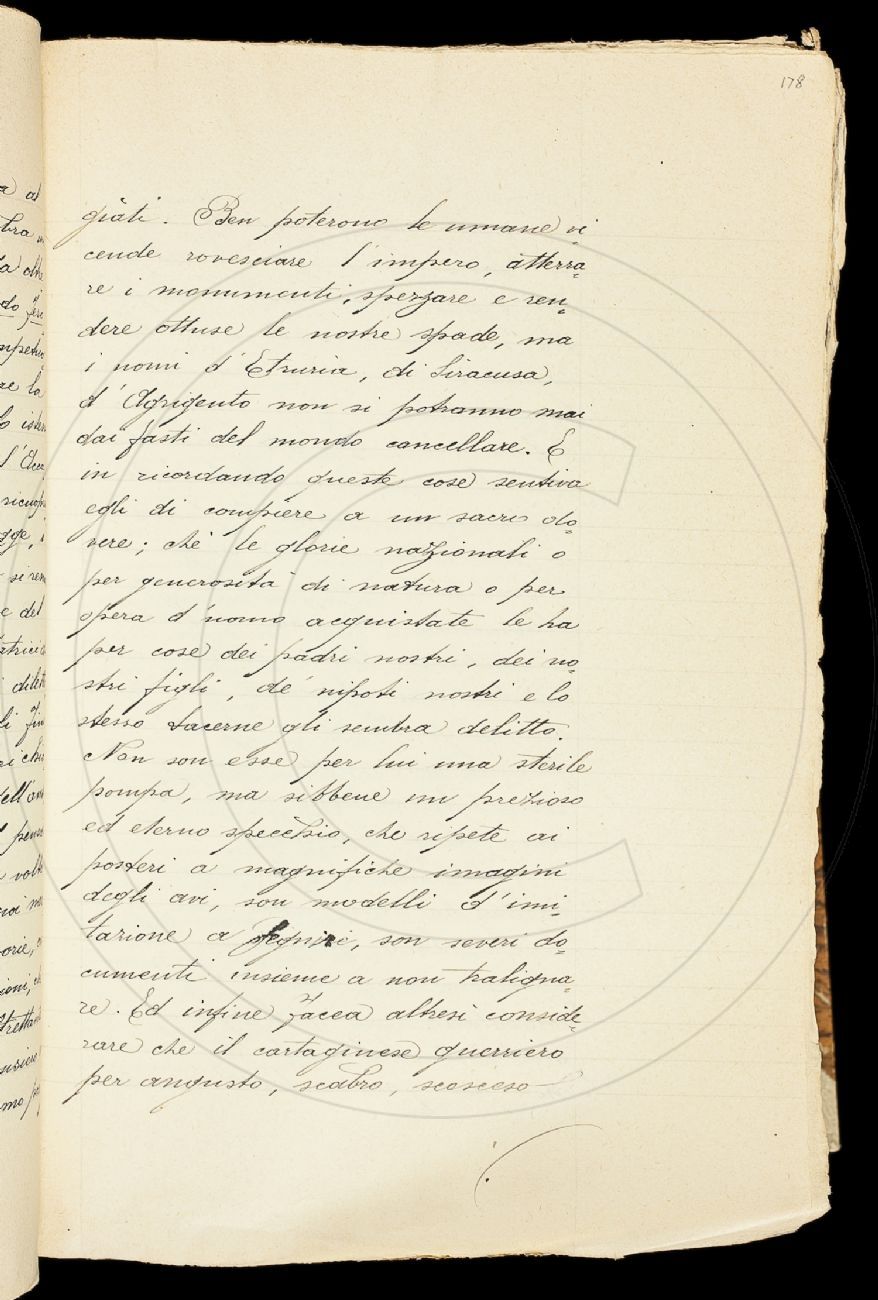 178
giati. Ben poterono le umane vi
cende rovesciare l'impero, atterra
re i monumenti, spezzare e ren
dere ottuse le nostre spade, ma
i nomi d'Etruria, di Siracusa,
d'Agrigento non si potranno mai
dai fasti del mondo cancellare. E
in ricordando queste cose sentiva
egli di compiere a un sacro do
vere; chè le glorie nazionali o
per generosità di natura o per
opera d'uomo acquistate le ha
per cose dei padri nostri, dei no
stri figli, de' nipoti nostri e lo
stesso tacerne gli sembra delitto.
Non son esse per lui una sterile
pompa, ma sibbene un prezioso
ed eterno specchio, che ripete ai
posteri a magnifiche imagini
degli avi, son modelli d'imi
tazione a seguire, son severi do
cumenti insieme a non traligna
re. Ed infine facea altresì conside
rare che il cartaginese guerriero
per angusto, scabro, scosceso